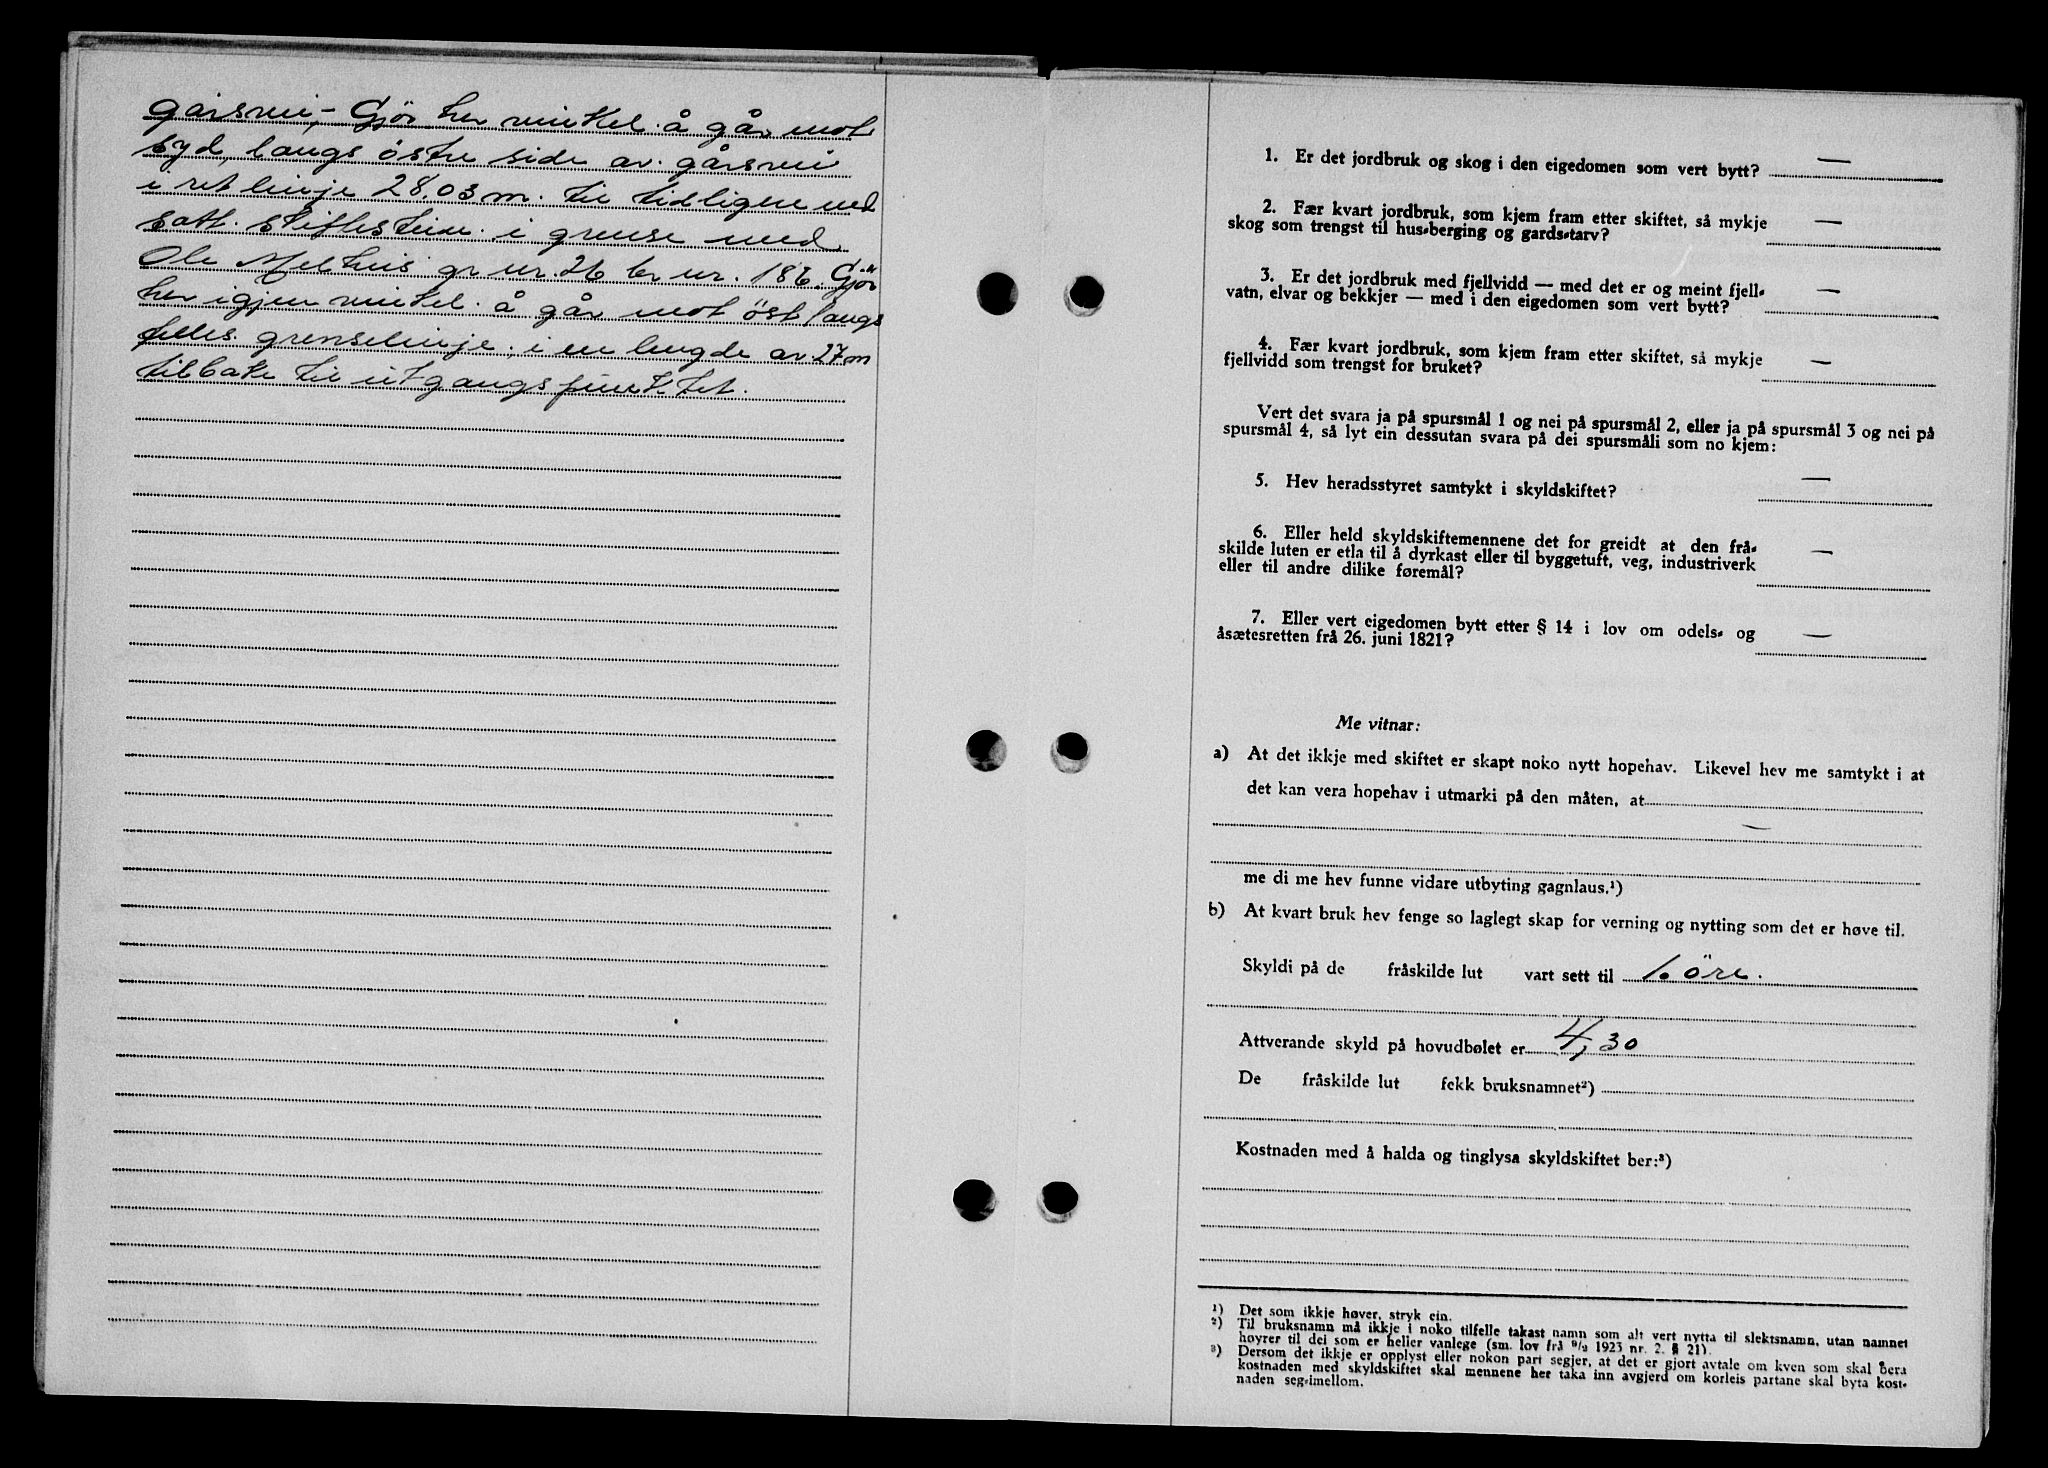 gårsvei,- Gjör her vinkel å går mot
syd, langs östre side av gårsvei
i ret linje 28,03 m. til tidligere ned
satt. skiftestein i grense med
Ole Melhus gr nr. 26 br nr. 186. Gjör
her igjen vinkel å går mot öst langs
felles grenselinje, i en lengde av 27 m
tilbake til utgangspunktet.
1. Er det jordbruk og skog i den eigedomen som vert bytt? —
2. Fær kvart jordbruk, som kjem fram etter skiftet, så mykje
skog som trengst til hus-berging og gards-tarv? —
3. Er det jordbruk med fjellvidd — med det er og meint fjell-
vatn, elvar og bekkjer — med i den eigedomen som vert bytt? —
4. Fær kvart jordbruk, som kjem fram etter skiftet, så mykje
fjellvidd som trengst for bruket? —
Vert det svara ja på spursmål 1 og nei på spursmål 2, eller ja på spursmål 3 og nei på
spursmål 4, så lyt ein dessutan svara på dei spursmåli som no kjem:
5. Hev heradsstyret samtykt i skyldskiftet? —
6. Eller held skyldskiftemennene det for greidt at den frå-
skilde luten er etla til å dyrkast eller til byggetuft, veg, industriverk
eller til andre dilike føremål? —
7. Eller vert eigedomen bytt etter § 14 i lov om odels- og
åsætesretten frå 26. juni 1821? —
Me vitnar:
a) At det ikkje med skiftet er skapt noko nytt hopehav. Likevel hev me samtykt i at
det kan vera hopehav i utmarki på den måten, at
—
me di me hev funne vidare utbyting gagnlaus.¹)
b) At kvart bruk hev fenge so laglegt skap for verning og nytting som det er høve til.
Skyldi på de fråskilde lut vart sett til 1. öre.
Attverande skyld på hovudbølet er 4,30
De fråskilde lut fekk bruksnamnet²)
Kostnaden med å halda og tinglysa skyldskiftet ber:³)
¹) Det som ikkje høver, stryk ein.
²) Til bruksnamn må ikkje i noko tilfelle takast namn som alt vert nytta til slektsnamn, utan namnet
høyrer til dei som er heller vanlege (sm. lov frå ⁹/₂ 1923 nr. 2. § 21).
³) Dersom det ikkje er opplyst eller nokon part segjer, at det er gjort avtale om kven som skal bera
kostnaden med skyldskiftet skal mennene her taka inn avgjerd om korleis partane skal byta kost-
naden seg-imellom.